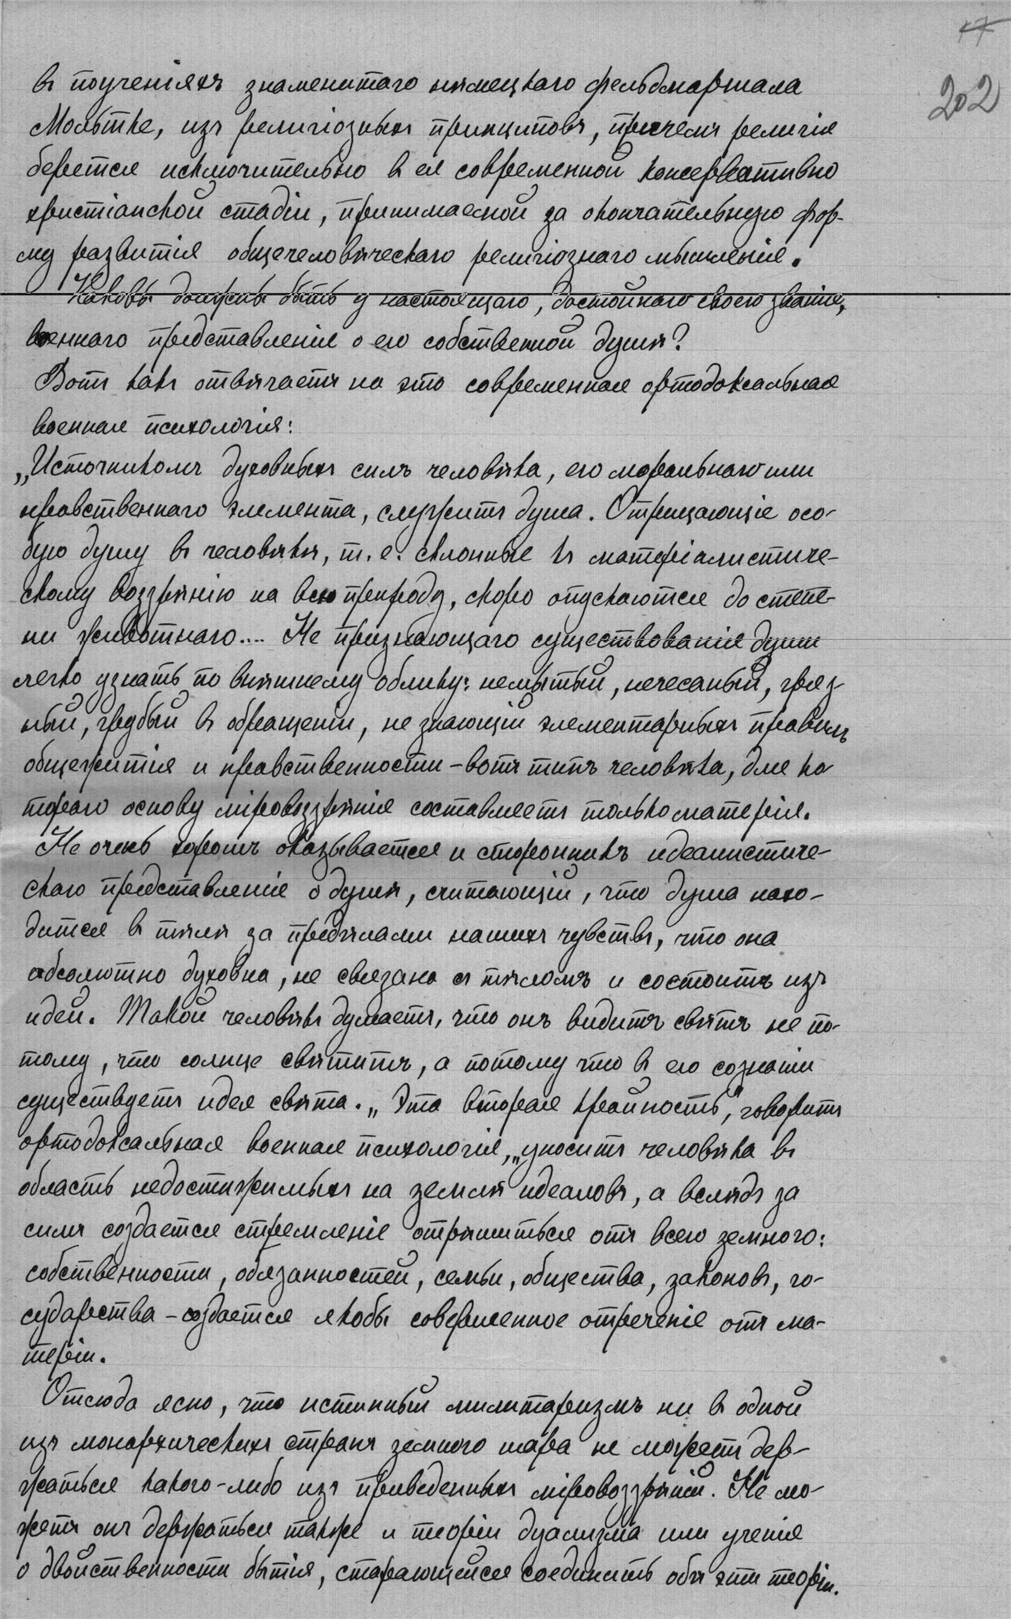 17
202
въ поученіяхъ знаменитаго нѣмецкаго фельдмаршала
Мольтке, изъ религіозныхъ принциповъ, причемъ религія
берется исключительно въ ея современной консервативно
христіанской стадіи, принимаемой за окончательную фор-
му развитія общечеловѣческаго религіознаго мышленія.
Каковы должны быть у настоящаго, достойнаго своего званія,
военнаго представленія о его собственной душѣ?
Вотъ какъ отвѣчаетъ на это современная ортодоксальная
военная психологія:
„Источникомъ духовныхъ силъ человѣка, его моральнаго или
нравственнаго элемента, служитъ душа. Отрицающіе осо-
бую душу въ человѣкѣ, т. е. склонные къ матеріалистиче-
скому воззрѣнію на всю природу, скоро опускаются до степе-
ни животнаго.... Не признающаго существованія души
легко узнать по внѣшнему облику: немытый, нечесаный, гряз
ный, грубый въ обращеніи, не знающій элементарныхъ правилъ
общежитія и нравственности – вотъ типъ человѣка, для ко
тораго основу міровоззрѣнія составляетъ только матерія.
Не очень хорошъ оказывается и сторонникъ идеалистиче-
скаго представленія о душѣ, считающій, что душа нахо-
дится въ тѣлѣ за предѣлами нашихъ чувствъ, что она
абсолютно духовна, не связана съ тѣломъ и состоитъ изъ
идей. Такой человѣкъ думаетъ, что онъ видитъ свѣтъ не по-
тому, что солнце свѣтитъ, а потому что въ его сознаніи
существуетъ идея свѣта. „Эта вторая крайность", говоритъ
ортодоксальная военная психологія, „уноситъ человѣка въ
область недостижимыхъ на землѣ идеаловъ, а вслѣдъ за
симъ создается стремленіе отрѣшиться отъ всего земного:
собственности, обязанностей, семьи, общества, законовъ, го-
сударства – создается якобы совершенное отреченіе отъ ма-
теріи.
Отсюда ясно, что истинный милитаризмъ ни въ одной
изъ монархическихъ странъ земного шара не можетъ дер-
жаться какого-либо изъ приведенныхъ міровоззрѣній. Не мо-
жетъ онъ держаться также и теоріи дуализма или ученія
о двойственности бытія, старающейся соединить обѣ эти теоріи.